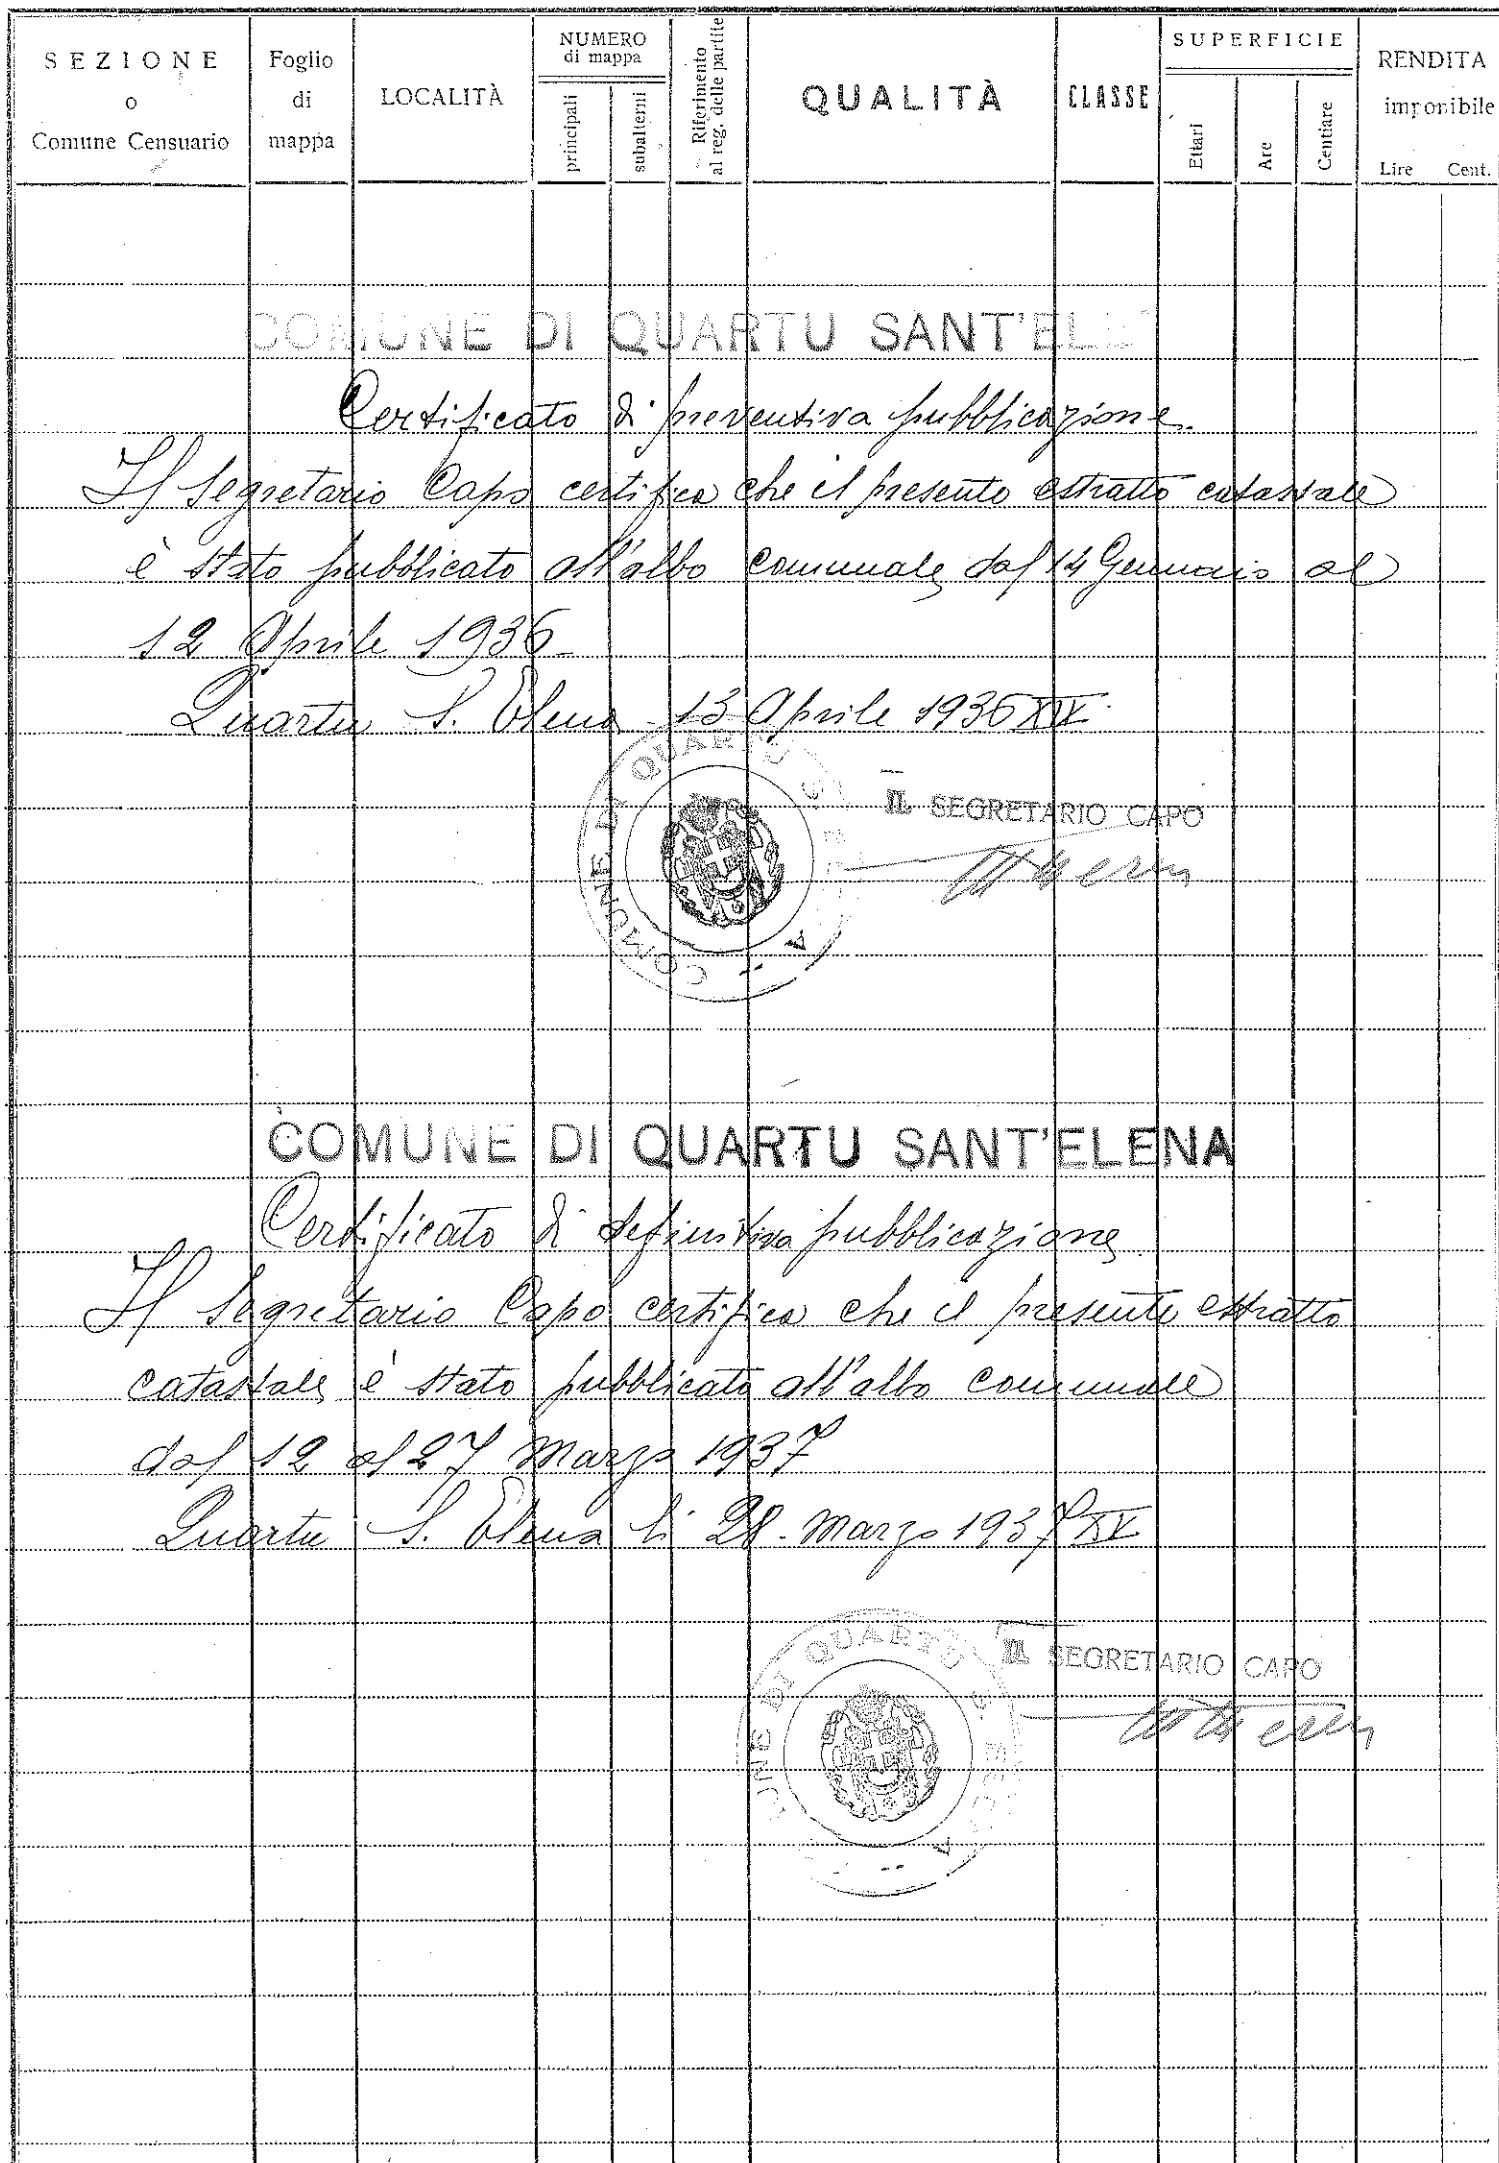 SEZIONE
o
Comune Censuario
Foglio
di
mappa
LOCALITÀ
NUMERO
di mappa
principali
subalterni
Riferimento
al reg. delle partite
QUALITÀ
CLASSE
SUPERFICIE
Ettari
Are
Centiare
RENDITA
imponibile
Lire Cent.
COMUNE DI QUARTU SANT'ELE
Certificato di preventiva pubblicazione.
Il Segretario Capo certifica che il presente estratto catastale
è stato pubblicato all'albo comunale dal 14 Gennaio al
12 Aprile 1936
Quartu S. Elena 13 Aprile 1936 XIV
COMUNE DI QUARTU S. ELENA
IL SEGRETARIO CAPO
COMUNE DI QUARTU SANT'ELENA
Certificato di definitiva pubblicazione
Il Segretario Capo certifica che il presente estratto
catastale è stato pubblicato all'albo comunale
dal 12 al 27 Marzo 1937
Quartu S. Elena lì 28. Marzo 1937 XV
UNE DI QUARTU S. ELENA
IL SEGRETARIO CAPO